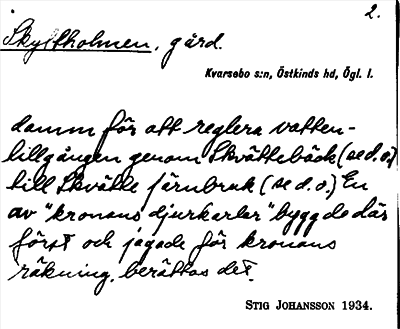 2.
Skyttholmen, gård.
Kvarsebo s:n, Östkinds hd, Ögl. l.
damm för att reglera vatten-
tillgången genom Skvättebäck (se d.o.)
till Skvätte järnbruk (se d.o.) En
av "kronans djurkarlar" byggde där
först och jagade för kronans
räkning, berättas det.
STIG JOHANSSON 1934.